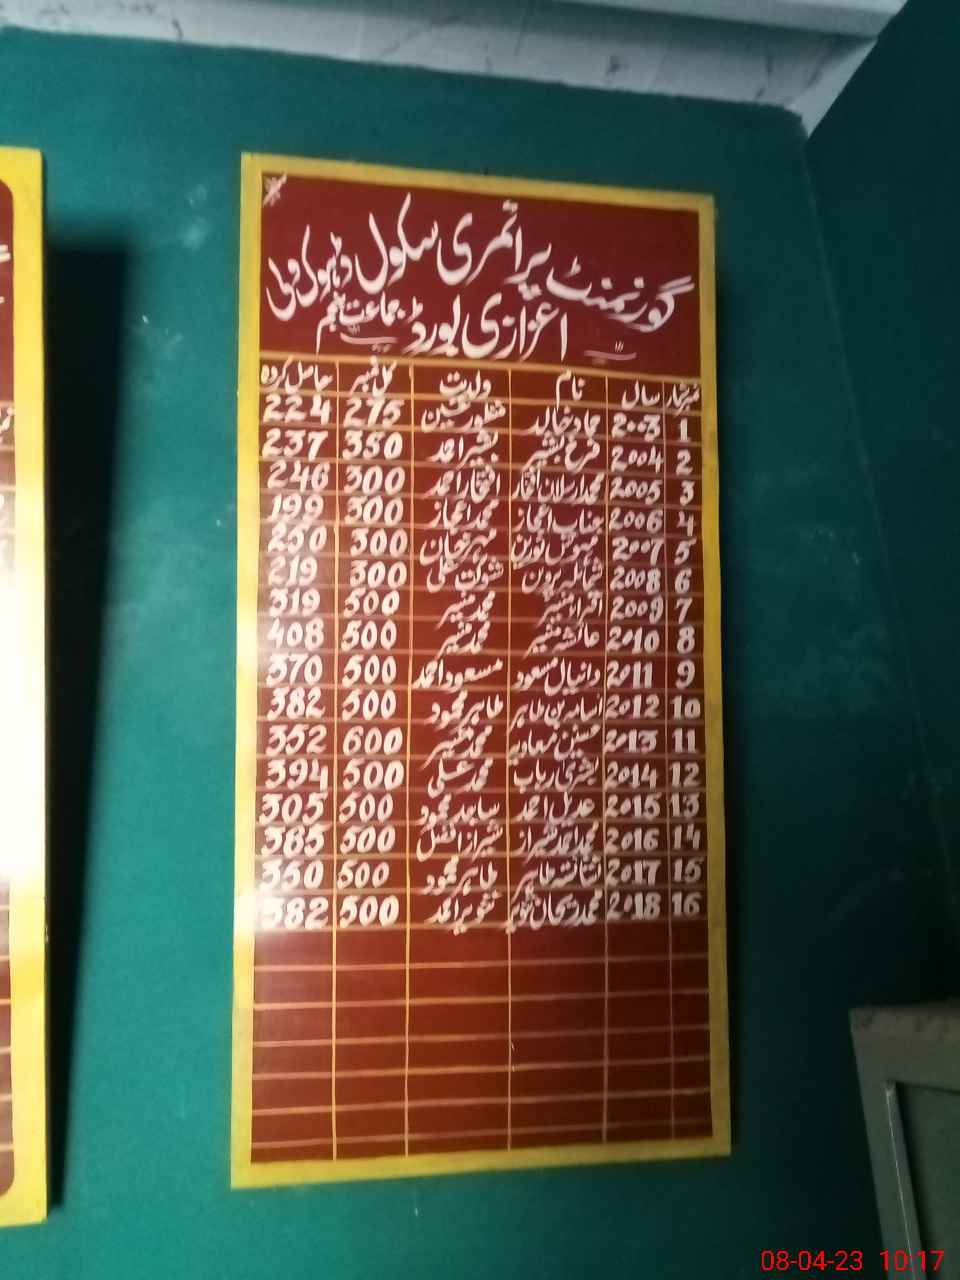 گورنمنٹ پرائمری سکول
اعزازی بورڈ جماعت پنجم
نمبرشمار سال نام ولدیت کل نمبر حاصل کردہ
1 2003 حماد خالد منظور حسین 275 224
2 2004 فرخ بشیر بشیر احمد 350 237
3 2005 محمد ارسلان افتخار افتخار احمد 300 246
4 2006 اعجاز محمد اعجاز 300 199
5 2007 مہوش نورین مہر خان 300 250
6 2008 شمائلہ پروین شوکت علی 300 219
7 2009 اقراء منیر محمد منیر 500 319
8 2010 عائشہ منیر محمد منیر 500 408
9 2011 دانیال مسعود مسعود احمد 500 370
10 2012 اسامہ بن طاہر طاہر محمود 500 382
11 2013 معاویہ محمد 600 352
12 2014 بشریٰ رباب محمد علی 500 394
13 2015 عدیل احمد ساجد محمود 500 305
14 2016 محمد احمد شیراز شیراز افضل 500 385
15 2017 طاہر طاہر محمود 500 350
16 2018 محمد ریحان تنویر تنویر احمد 500 382
08-04-23 10:17